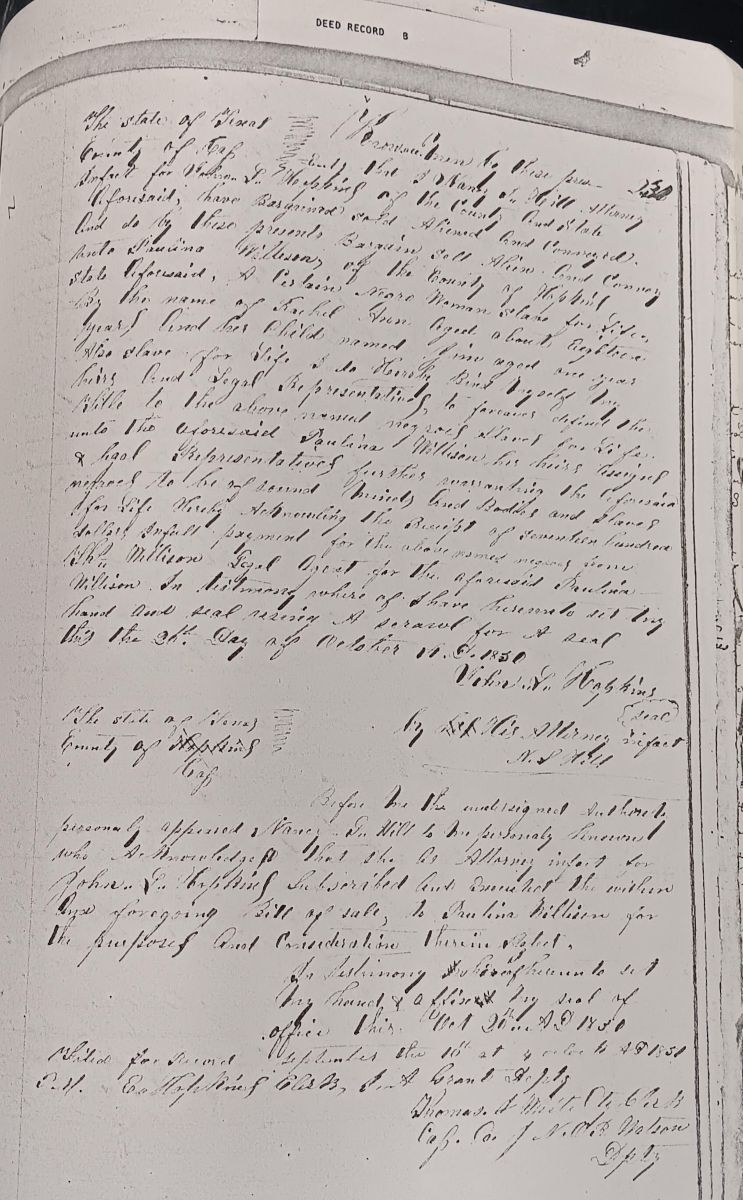 DEED RECORD B
The State of Texas
County of Cass Know all men by these pres-
ents that I Nancy L Hill Attorney
Infact for John L. Hopkins of the County And State
Aforesaid, have Bargained sold Aliened And Conveyed
And do by these presents Bargain sell Alien And Convey
unto Paulina Willison, of the County of Hopkins
State Aforesaid, A Certain Negro Woman Slave for Life
by the name of Rachel Ann Aged about Eighteen
years And her Child named Jim aged one year
Also Slave for Life I do Hereby Bind Myself My
heirs And Legal Representatives, to forever defend the
Title to the above named negroes Slaves for Life
unto the Aforesaid Paulina Willison her heirs Assigns
& legal Representatives further warranting the Aforesaid
negroes to be of sound Minds And Bodies and Slaves
for Life Hereby Acknowledg the Receipt of Seventeen hundred
dollars Infull payment for the above named negroes from
Willison Legal Agent for the aforesaid Paulina
Willison. In testimony where of I have hereunto set my
hand and seal using A scrawl for A seal
this the 26th Day of October A.D. 1850
John L. Hopkins
by His Attorney infact (seal)
N. L Hill
The State of Texas
County of Hopkins
Cass
Before me the undersigned Authority
personaly appeared Nancy L Hill to me personaly known
who Acknowledged that she as Attorney infact for
John L. Hopkins Subscribed And Executed the within
And foregoing Bill of sale, to Paulina Willison for
the purposes And Consideration therein stated.
In Testimony whereof hereunto set
my hand & affixed my seal of
office this Oct 26th AD 1850
Filed for Record September the 10th at 4 oclock AD 1851
P.M. E. Hopkins Clerk, Grant Depty
Thomas Cty Clerk
Cass Co Watson
Dpty